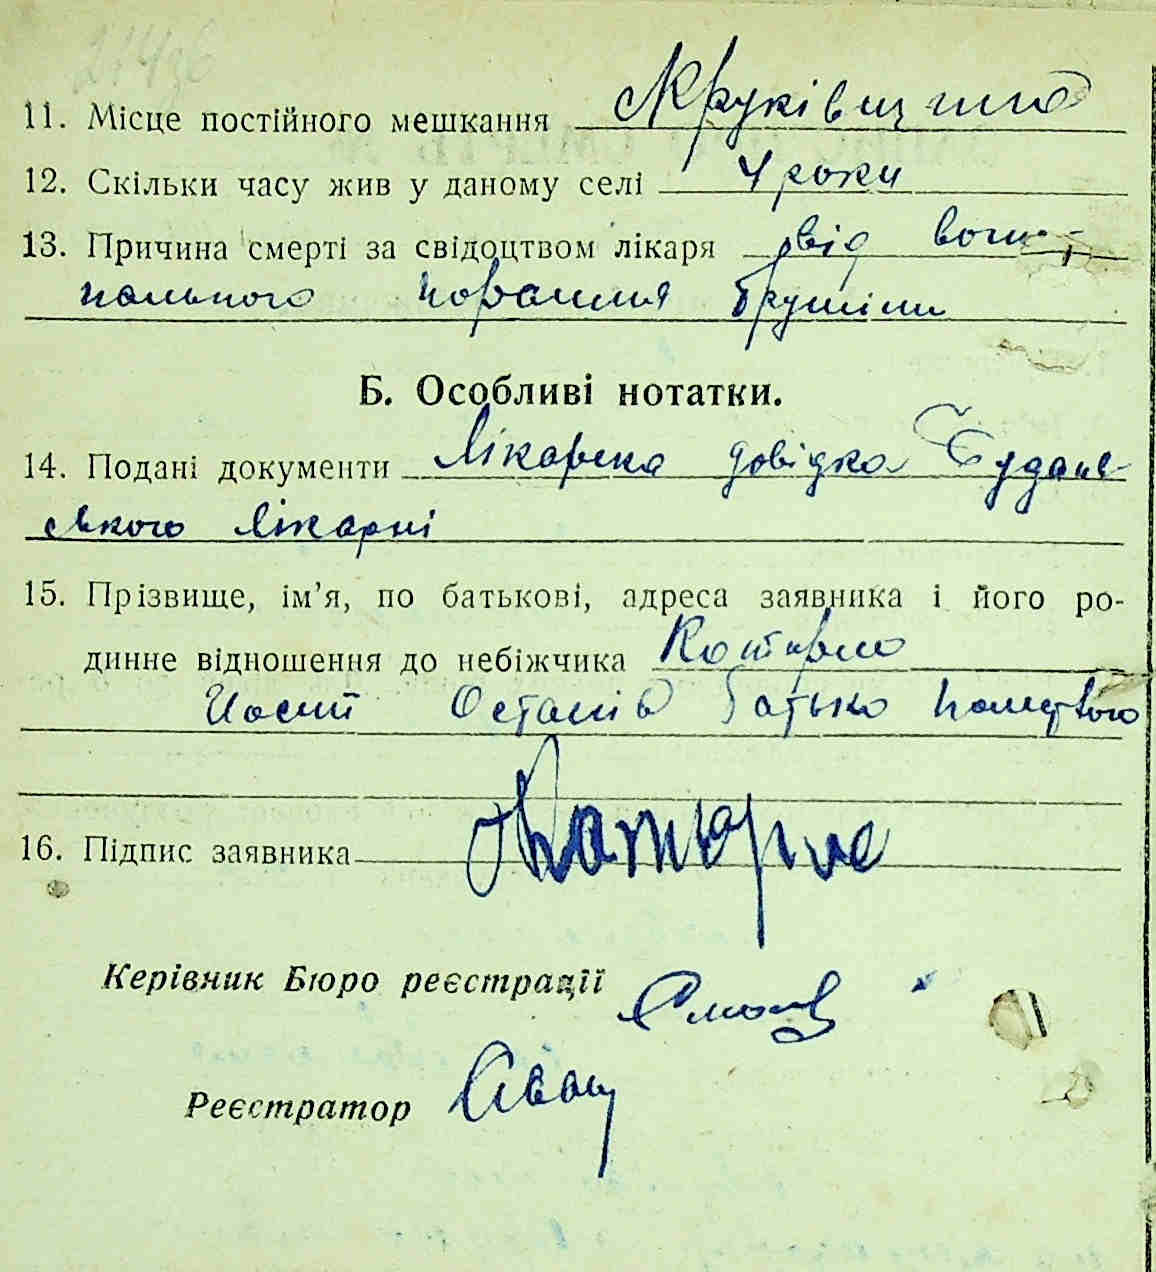 11. Місце постійного мешкання Круківщина
12. Скільки часу жив у даному селі 4 роки
13. Причина смерті за свідоцтвом лікаря від
пального поранення брушіни
Б. Особливі нотатки.
14. Подані документи Лікарска довідка Будан-
ського лікарні
15. Прізвище, ім'я, по батькові, адреса заявника і його ро-
динне відношення до небіжчика
Йосип Остапів батько померлого
16. Підпис заявника
Керівник Бюро реєстрації
Реєстратор